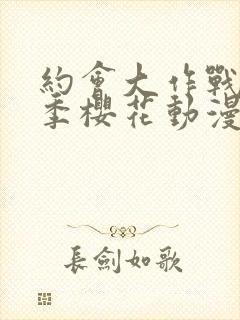 約會大作戰
季櫻花動漫
長劍如歌